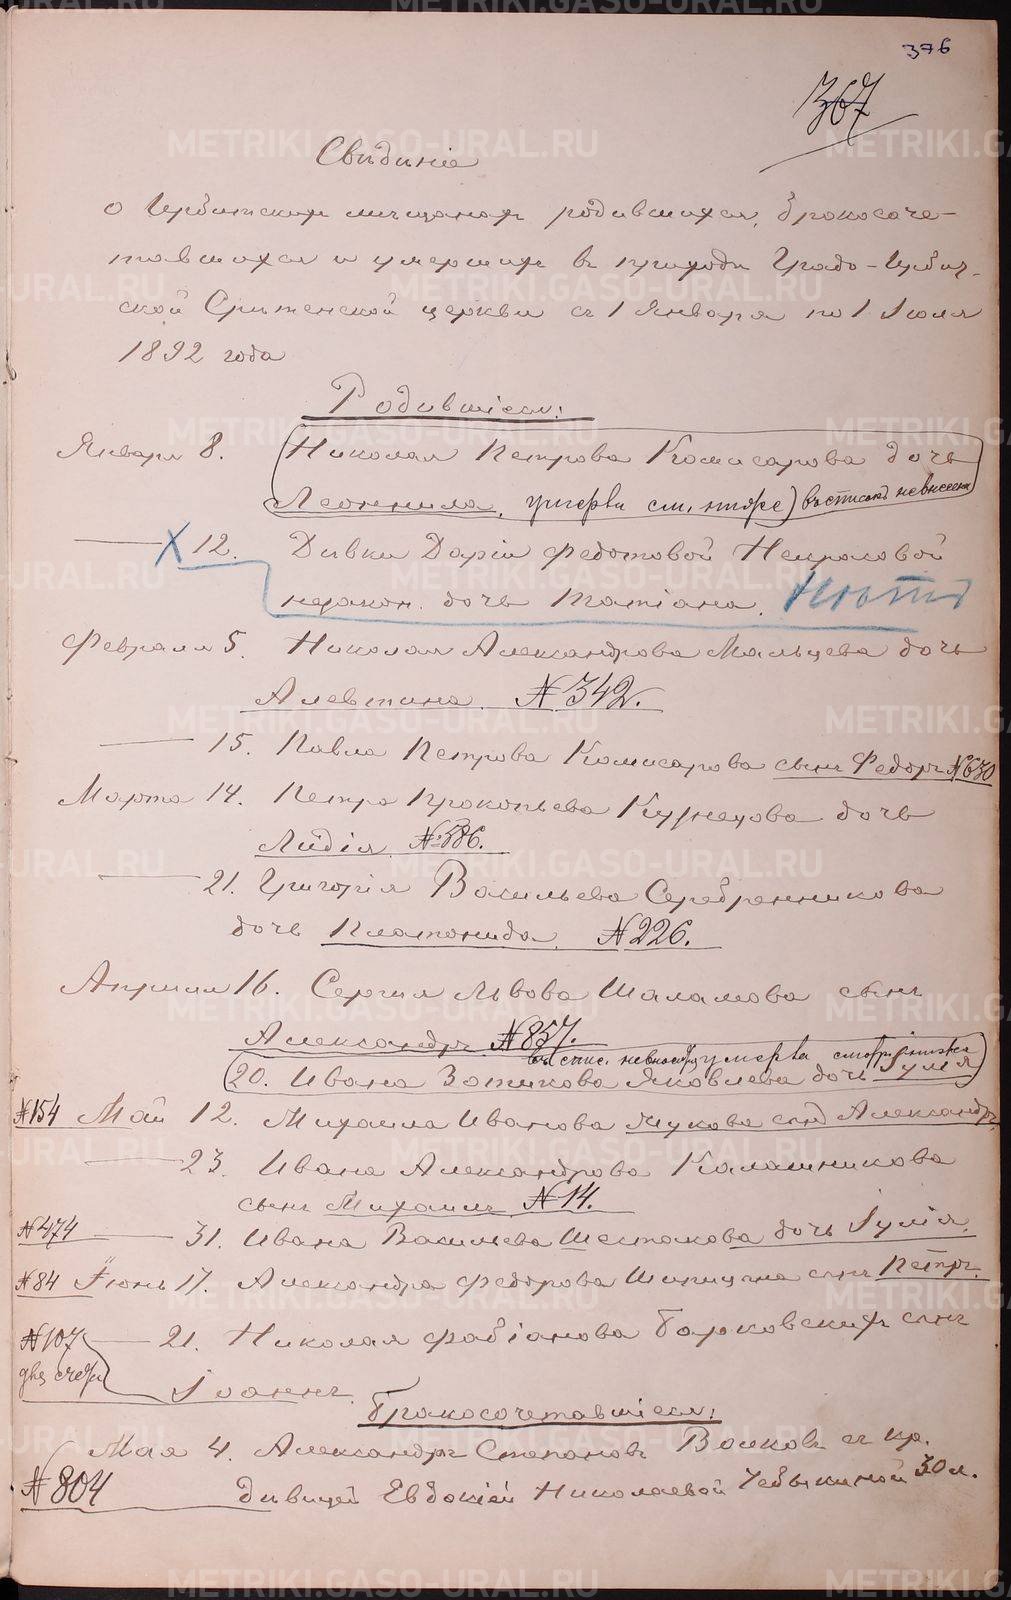 376
367
Свѣдѣніе
о Ирбитскихъ мѣщанахъ родившихся, бракосоче-
тавшихся и умершихъ въ приходѣ Градо-Ирбит-
ской Срѣтенской церкви съ 1 Января по 1 Іюля
1892 года
Родившіеся:
Января 8. Николая Петрова Комисарова дочь
Леонилла, умерла см. ниже) въ списокъ не внесена
X 12. Дѣвки Даріи Федотовой Некрасовой
незакон. дочь Татіана.
Февраля 5. Николая Александрова Мальцева дочь
Алевтина. № 342.
15. Павла Петрова Комисарова сынъ Федоръ № 630
Марта 14. Петра Прокопьева Кузнецова дочь
Лидія. № 586.
21. Григорія Васильева Серебренникова
дочь Платонида. № 226.
Апрѣля 16. Сергѣя Львова Шаламова сынъ
Александръ № 857.
въ спис. не внос. умерла смотр. ниже
20. Ивана Зотикова Яковлева дочь Іулія)
№ 154 Май 12. Михаила Иванова Жукова сынъ Александръ.
23. Ивана Александрова Калашникова
сынъ Михаилъ № 14.
№ 474 31. Ивана Васильева Шестакова дочь Іулія.
№ 84 Іюнь 17. Александра Федорова Шипицына сынъ Петръ.
№ 107 21. Николая Фабіанова Барковскихъ сынъ
Іоаннъ.
Бракосочетавшіеся:
Мая 4. Александръ Степановъ Волковъ съ кр.
№ 804 дѣвицей Евдокіей Николаевой Чебыкиной 30 л.
METRIKI.GASO-URAL.RU